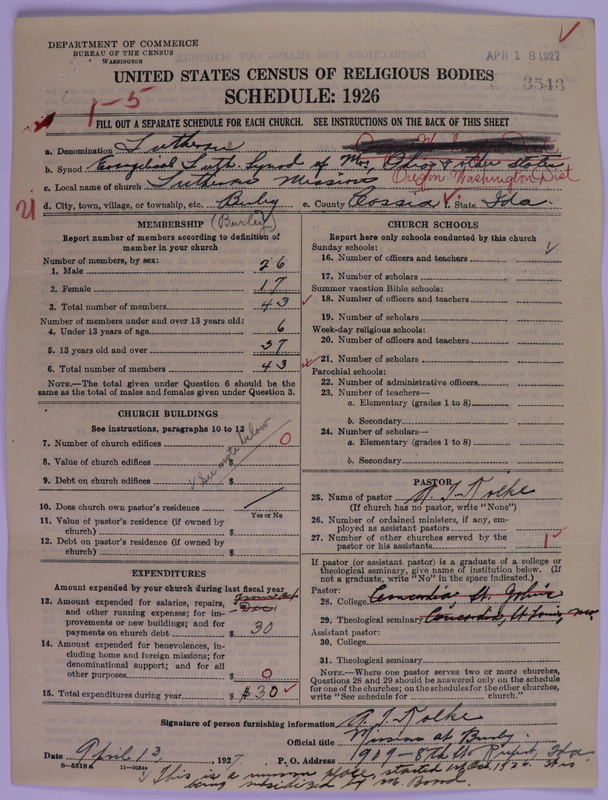 DEPARTMENT OF COMMERCE
BUREAU OF THE CENSUS
WASHINGTON
APR 18 1927
3543
1-5
UNITED STATES CENSUS OF RELIGIOUS BODIES
SCHEDULE: 1926
FILL OUT A SEPARATE SCHEDULE FOR EACH CHURCH. SEE INSTRUCTIONS ON THE BACK OF THIS SHEET
a. Denomination Lutheran
b. Synod Evangelical Luth. Synod of Mo., Ohio & other States
Oregon Washington Dist
c. Local name of church Lutheran Mission
21
d. City, town, village, or township, etc. Burley e. County Cassia f. State Ida.
(Burley)
MEMBERSHIP
Report number of members according to definition of member in your church
Number of members, by sex:
1. Male 26
2. Female 17
3. Total number of members 43
Number of members under and over 13 years old:
4. Under 13 years of age 6
5. 13 years old and over 37
6. Total number of members 43
NOTE.—The total given under Question 6 should be
same as the total of males and females given under Question 3.
CHURCH BUILDINGS
See instructions, paragraphs 10 to 12
7. Number of church edifices 0
8. Value of church edifices $
9. Debt on church edifices $
See note below
10. Does church own pastor's residence
Yes or No
11. Value of pastor's residence (if owned by
church) $
12. Debt on pastor's residence (if owned by
church) $
EXPENDITURES
Amount expended by your church during last fiscal year
13. Amount expended for salaries, repairs,
and other running expenses; for im-
provements or new buildings; and for
payments on church debt $ 30
14. Amount expended for benevolences, in-
cluding home and foreign missions; for
denominational support; and for all
other purposes $ 0
15. Total expenditures during year $ $30
CHURCH SCHOOLS
Report here only schools conducted by this church
Sunday schools:
16. Number of officers and teachers
17. Number of scholars
Summer vacation Bible schools:
18. Number of officers and teachers
19. Number of scholars
Week-day religious schools:
20. Number of officers and teachers
21. Number of scholars
Parochial schools:
22. Number of administrative officers
23. Number of teachers—
a. Elementary (grades 1 to 8)
b. Secondary
24. Number of scholars—
a. Elementary (grades 1 to 8)
b. Secondary
PASTOR
25. Name of pastor Rolke
(If church has no pastor, write "None")
26. Number of ordained ministers, if any, em-
ployed as assistant pastors
27. Number of other churches served by the
pastor or his assistants 1
If pastor (or assistant pastor) is a graduate of a college or
theological seminary, give name of institution below. (If
not a graduate, write "No" in the space indicated.)
Pastor:
28. College Concordia St. John's
29. Theological seminary Concordia, St. Louis, Mo.
Assistant pastor:
30. College
31. Theological seminary
NOTE.—Where one pastor serves two or more churches,
Questions 28 and 29 should be answered only on the schedule
for one of the churches; on the schedules for the other churches,
write "See schedule for ........ church."
Signature of person furnishing information Rolke
Official title Mission at Burley
Date April 13, 1927 P. O. Address 1909-8th St. Rupert, Ida
8-5518a
This is a mission place, started in Oct. 1926. It is
being subsidized by M. Board.